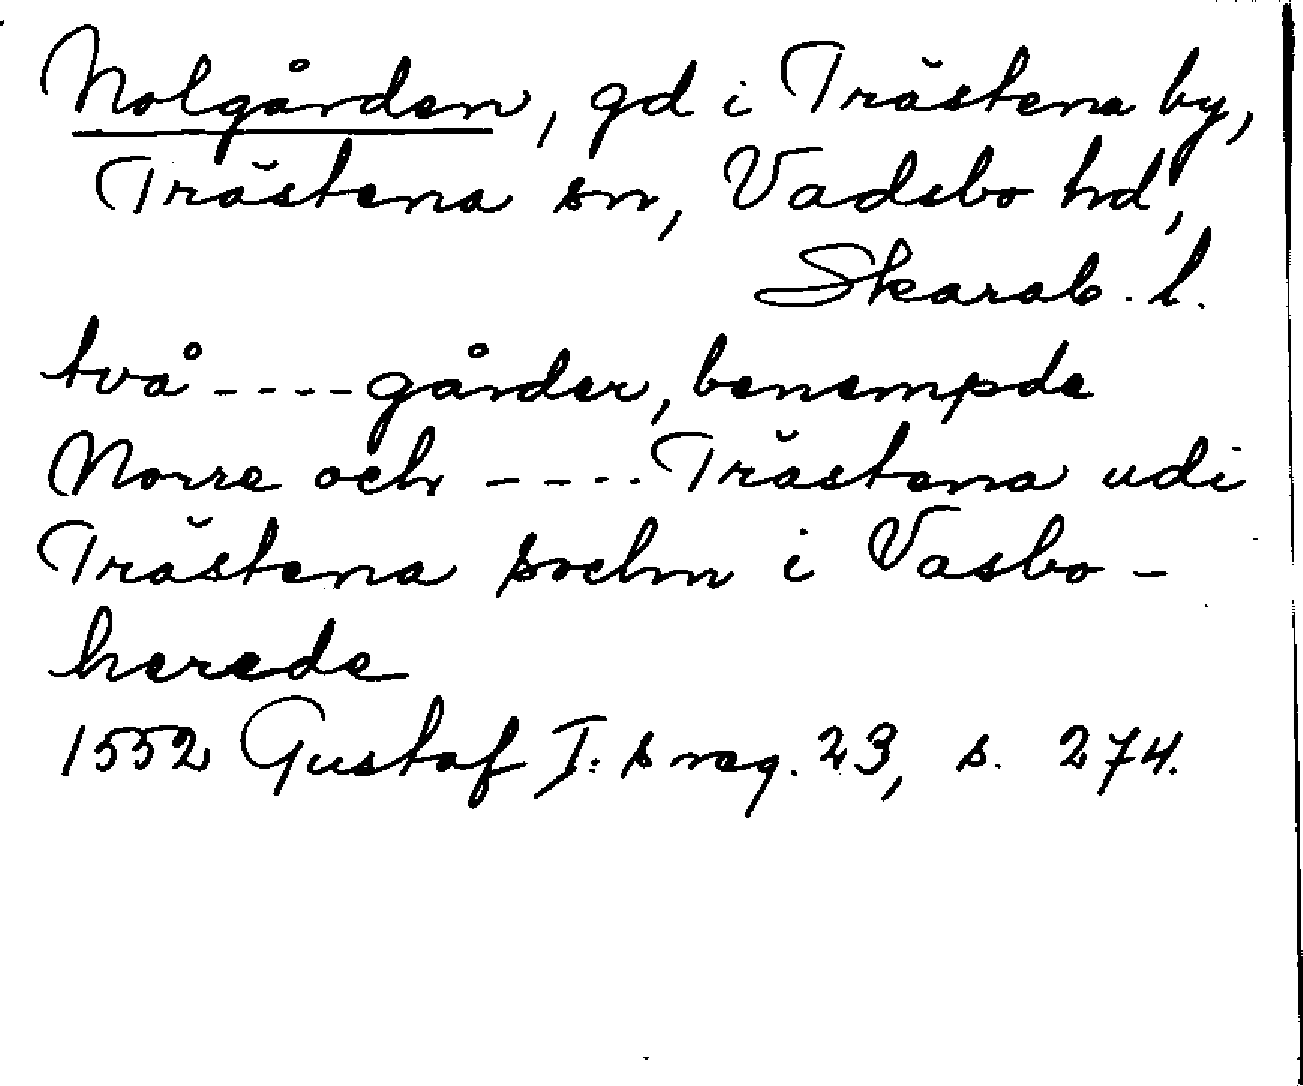 Nolgården, gd i Trästena by,
Trästena sn, Vadsbo hd,
Skarab. l.
två ---- gårder, benempde
Norre och ---- Trästena udi
Trästena sochn i Vasbo-
herede
1552 Gustaf I:s reg. 23, s. 274.